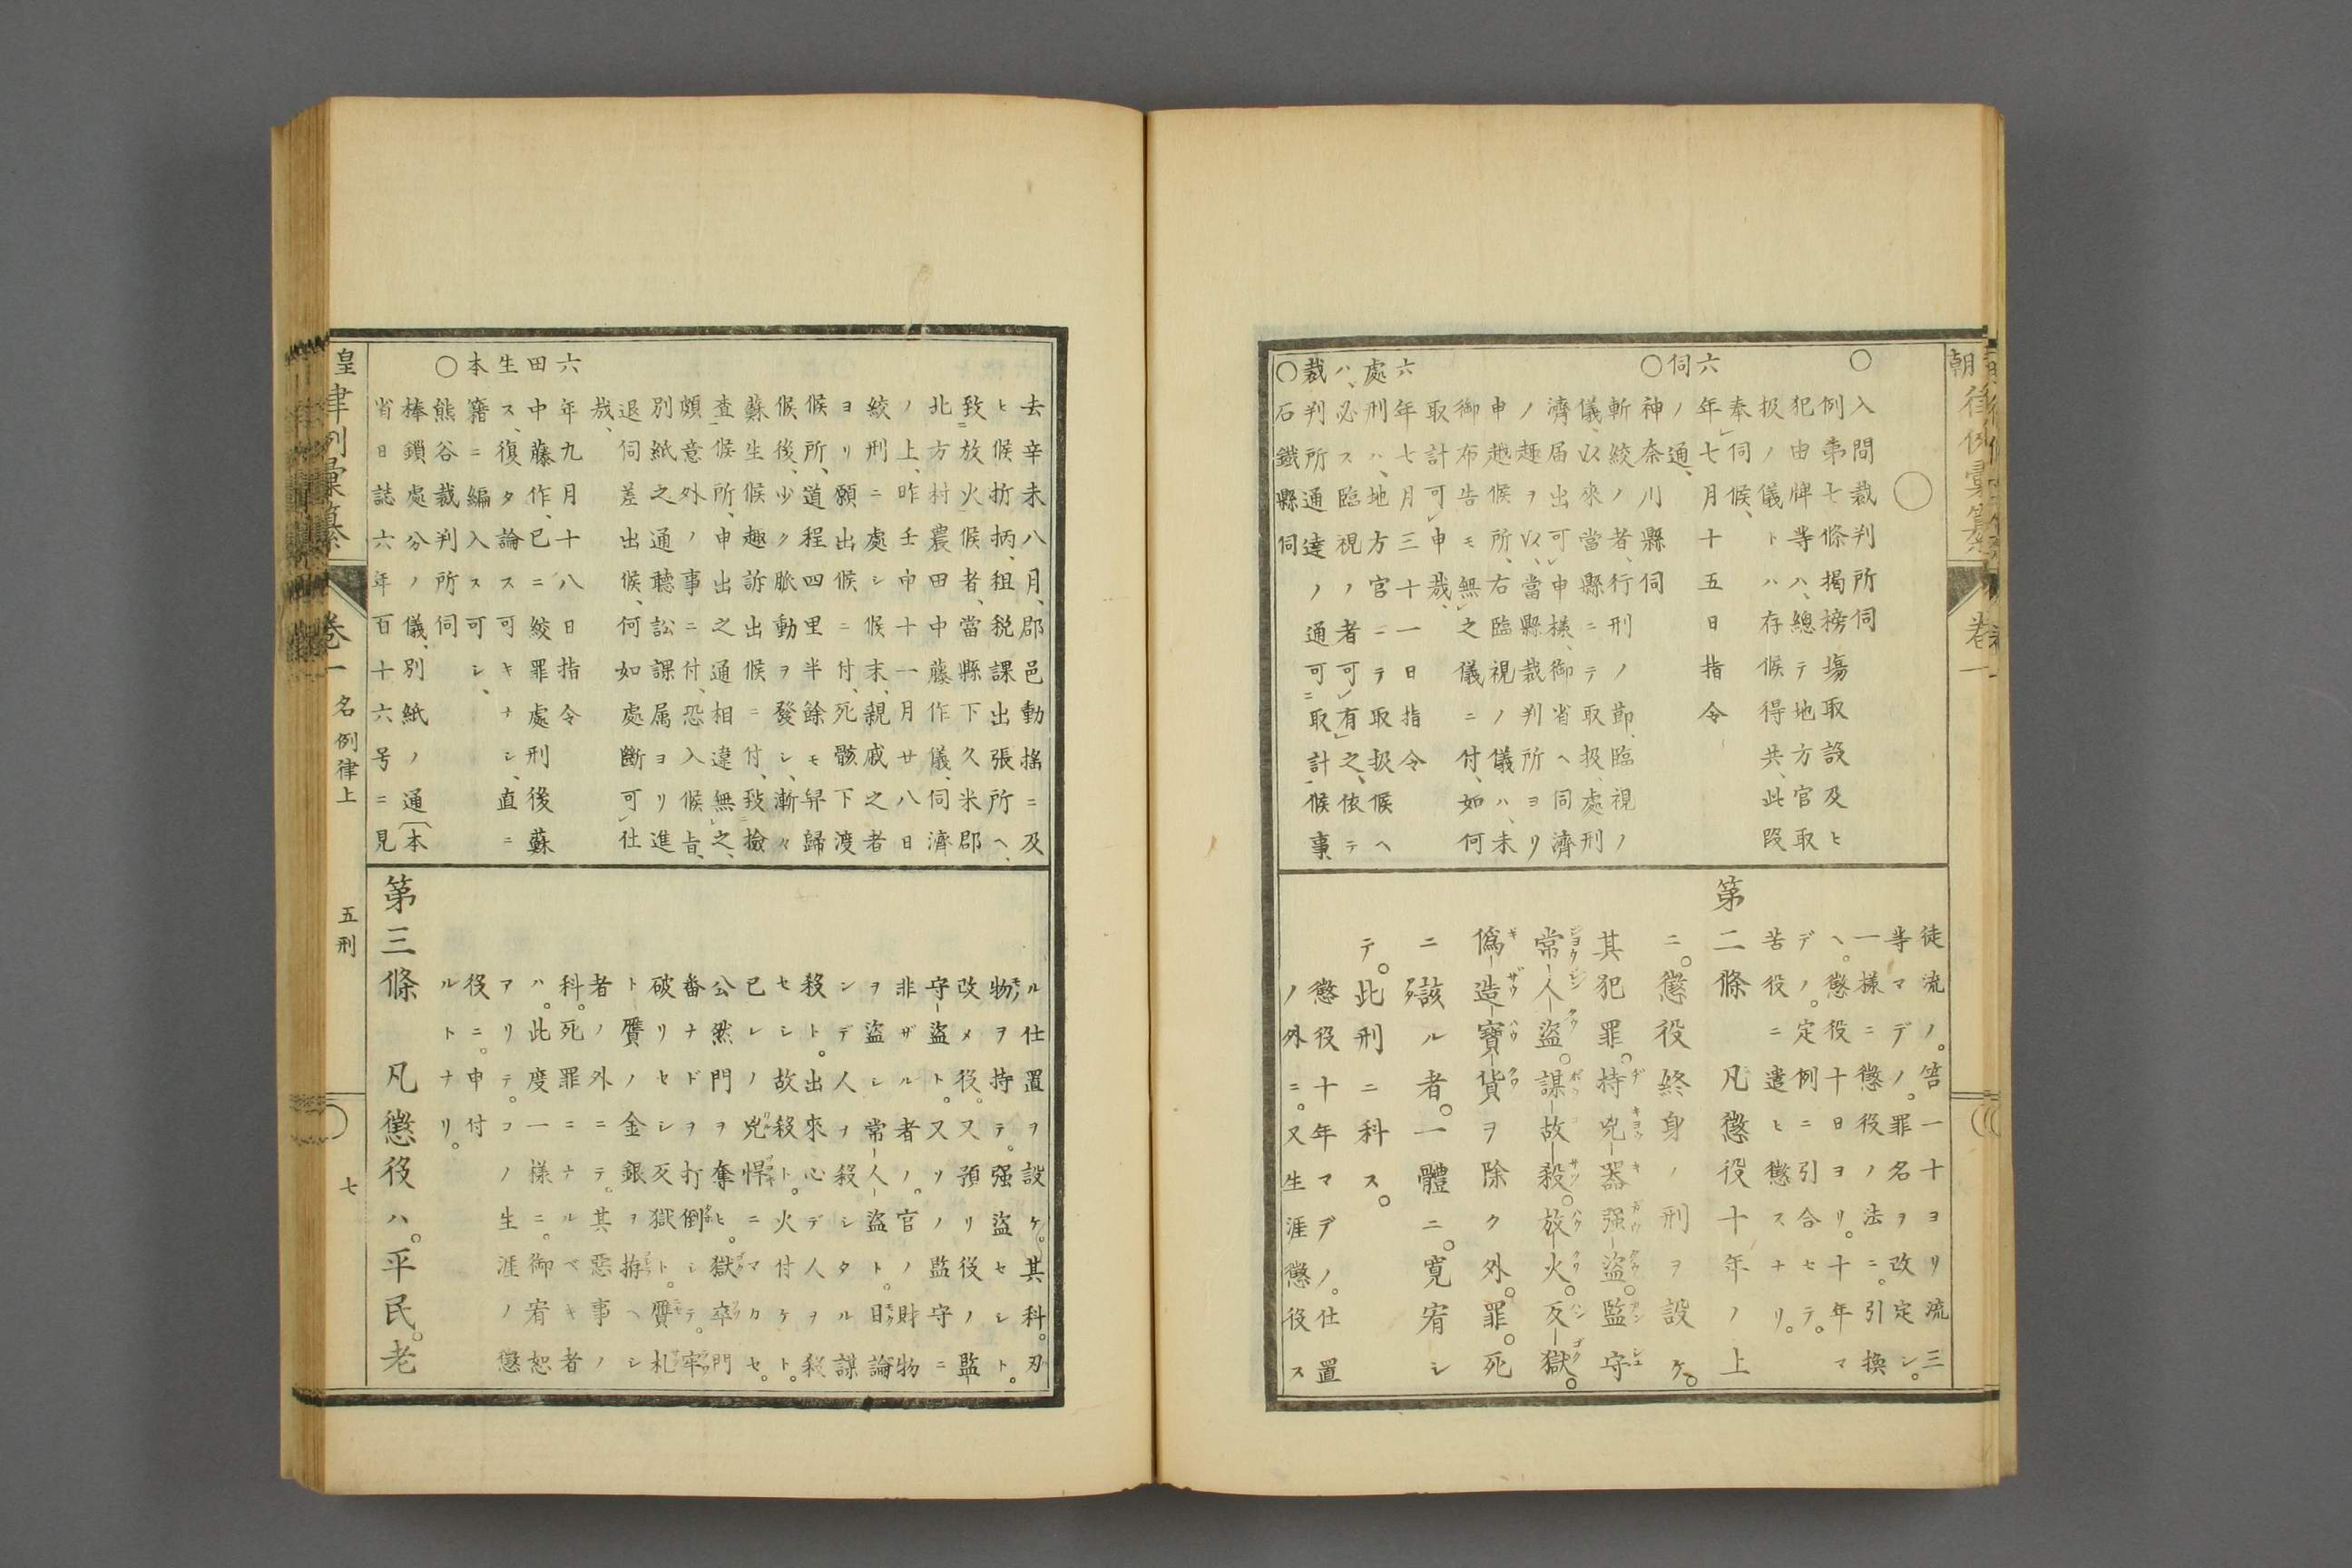 入間裁判所伺
○例第七條揭榜場取設及ヒ
犯由牌等ハ、總テ地方官取
扱ノ儀トハ存候得共、此段
奉伺候、
六年七月十五日指令
伺ノ通、
○神奈川縣伺
斬絞ノ者、行刑ノ節、臨視ノ
儀、以來當縣ニテ取扱、處刑
濟届出可申樣、御省ヘ同濟
ノ趣ヲ以、當縣裁判所ヨリ
申越候所、右臨視ノ儀ハ、未
御布告モ無之儀ニ付、如何
取計可申哉、
六年七月三十一日指令
處刑ハ、地方官ニテ取扱候ヘ
ハ、必ス臨視ノ者可有之、依テ
裁判所通達ノ通可取計候事、
○石鐵縣伺
徒流ノ。笞一十ヨリ流三
等マデノ。罪名ヲ改定シ。
一樣ニ懲役ノ法ニ。引換
ヘ。懲役十日ヨリ。十年マ
デノ。定例ニ引合セテ。
苦役ニ遣ヒ懲スナリ。
第二條 凡懲役十年ノ上
ニ。懲役終身ノ刑ヲ設ケ。
其犯罪。持兇器强盜。監守
常人盜。謀故殺。放火。反獄。
僞造寶貨ヲ除ク外。罪。死
ニ該ル者。一體ニ。寬宥シ
テ。此刑ニ科ス。
懲役十年マデノ。仕置
ノ外ニ。又生涯懲役ス
朝
卷一
去辛未八月、郡邑動搖ニ及
ヒ候折柄、租税課出張所ヘ、
致放火候者、當縣下久米郡
北方村農田中藤作儀、伺濟
ノ上、昨壬申十一月廿八日
絞刑ニ處シ候末、親戚之者
ヨリ願出候ニ付、死骸下渡
候所、道程四里半餘モ舁歸
候後、少ク脈動ヲ發シ、漸々
蘇生候趣訴出候ニ付、致撿
査候所、申出之通相違無之、
頗意外ノ事ニ付、恐入候旨、
別紙之通聽訟課属ヨリ進
退伺差出候、何如處斷可仕
哉、
六年九月十八日指令
田中藤作、已ニ絞罪處刑後蘇
生ス、復タ論スス可キナシ、直ニ
本籍ニ編入ス可シ、
○熊谷裁判所伺
棒鎖處分ノ儀、別紙ノ通〔本
省日誌六年百十六号ニ見
ル仕置ヲ設ケ。其科。刃
物ヲ持テ。强盜セシト。
改メ後。又預リ後ノ監
守盜ト。又リノ監守ニ
非ザル者ノ。官ノ財物
ヲ盜シ常人盜ト。日論
ンデ人ヲ殺シタル謀
殺ト。出來心デ人ヲ殺
セシ故殺ト。火付ケト。
已レノ兇悍ニマカセ
公然門ヲ奪ヒ。獄卒門
番ナドヲ打倒シテ。牢
破リセシ反獄ト。贋札
ト贋ノ金銀ヲ拵ヘシ
者ノ外ニテ。其惡事ノ
科。死罪ニナルベキ者
ハ。此度一樣ニ。御宥恕
アリテ。コノ生涯ノ懲
役ニ。申付
ルトナリ。
第三條 凡懲役ハ。平民。老
皇
卷一 名例律上 五刑 七